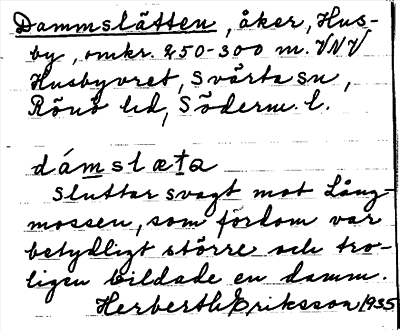 Dammslätten, åker, Hus-
by, omkr. 250-300 m. VNV
Husbyvret, Svärta sn,
Rönö hd, Söderm. l.
dámslæta
Sluttar svagt mot Lång-
mossen, som fördom var
betydligt större och tro-
ligen bildade en damm.
Herberth Eriksson 1935